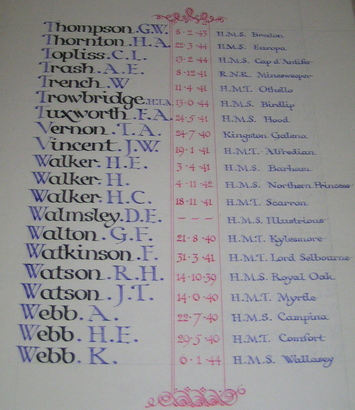 Thompson. G.W. 8·2·43 H.M.S. Bredon
Thornton. H.A. 22·3·44 H.M.S. Europa
Topliss. C.L. 13·2·44 H.M.S. Cap d'Antifer
Trash. A.E. 8·12·41 R.N.R. Minesweeper
Trench. W 11·4·41 H.M.T. Othello
Trowbridge. 13·0·44 H.M.S. Birdlip
Tuxworth. F.A. 24·5·41 H.M.S. Hood
Vernon. T.A. 24·7·40 Kingston Galena
Vincent. J.W. 19·1·41 H.M.T.
Walker. H.E. 3·4·41 H.M.S. Barham
Walker. H. 4·11·42 H.M.S. Northern Princess
Walker. H.C. 18·11·41 H.M.T. Scarron
Walmsley. D.E. – – – H.M.S. Illustrious
Walton. G.F. 21·8·40 H.M.T. Kylesmore
Watkinson. F. 31·3·41 H.M.T. Lord Selbourne
Watson. R.H. 14·10·39 H.M.S. Royal Oak
Watson. J.T. 14·0·40 H.M.T. Myrtle
Webb. A. 22·7·40 H.M.S. Campina
Webb. H.E. 29·5·40 H.M.T. Comfort
Webb. K. 6·1·44 H.M.S. Wallasey